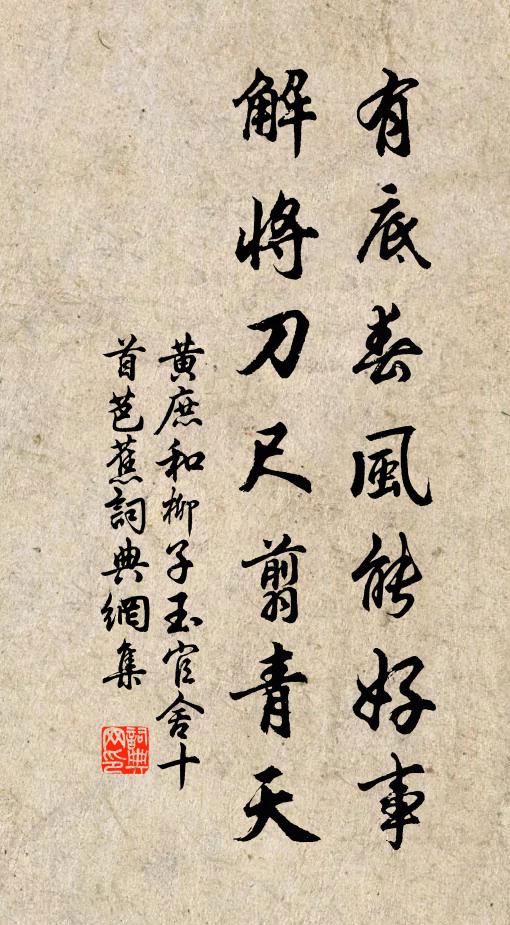 有底春風能好事
解將刀尺翦青天
黃庶和柳子玉官舍十
首芭蕉詞典網集
詞典
网印